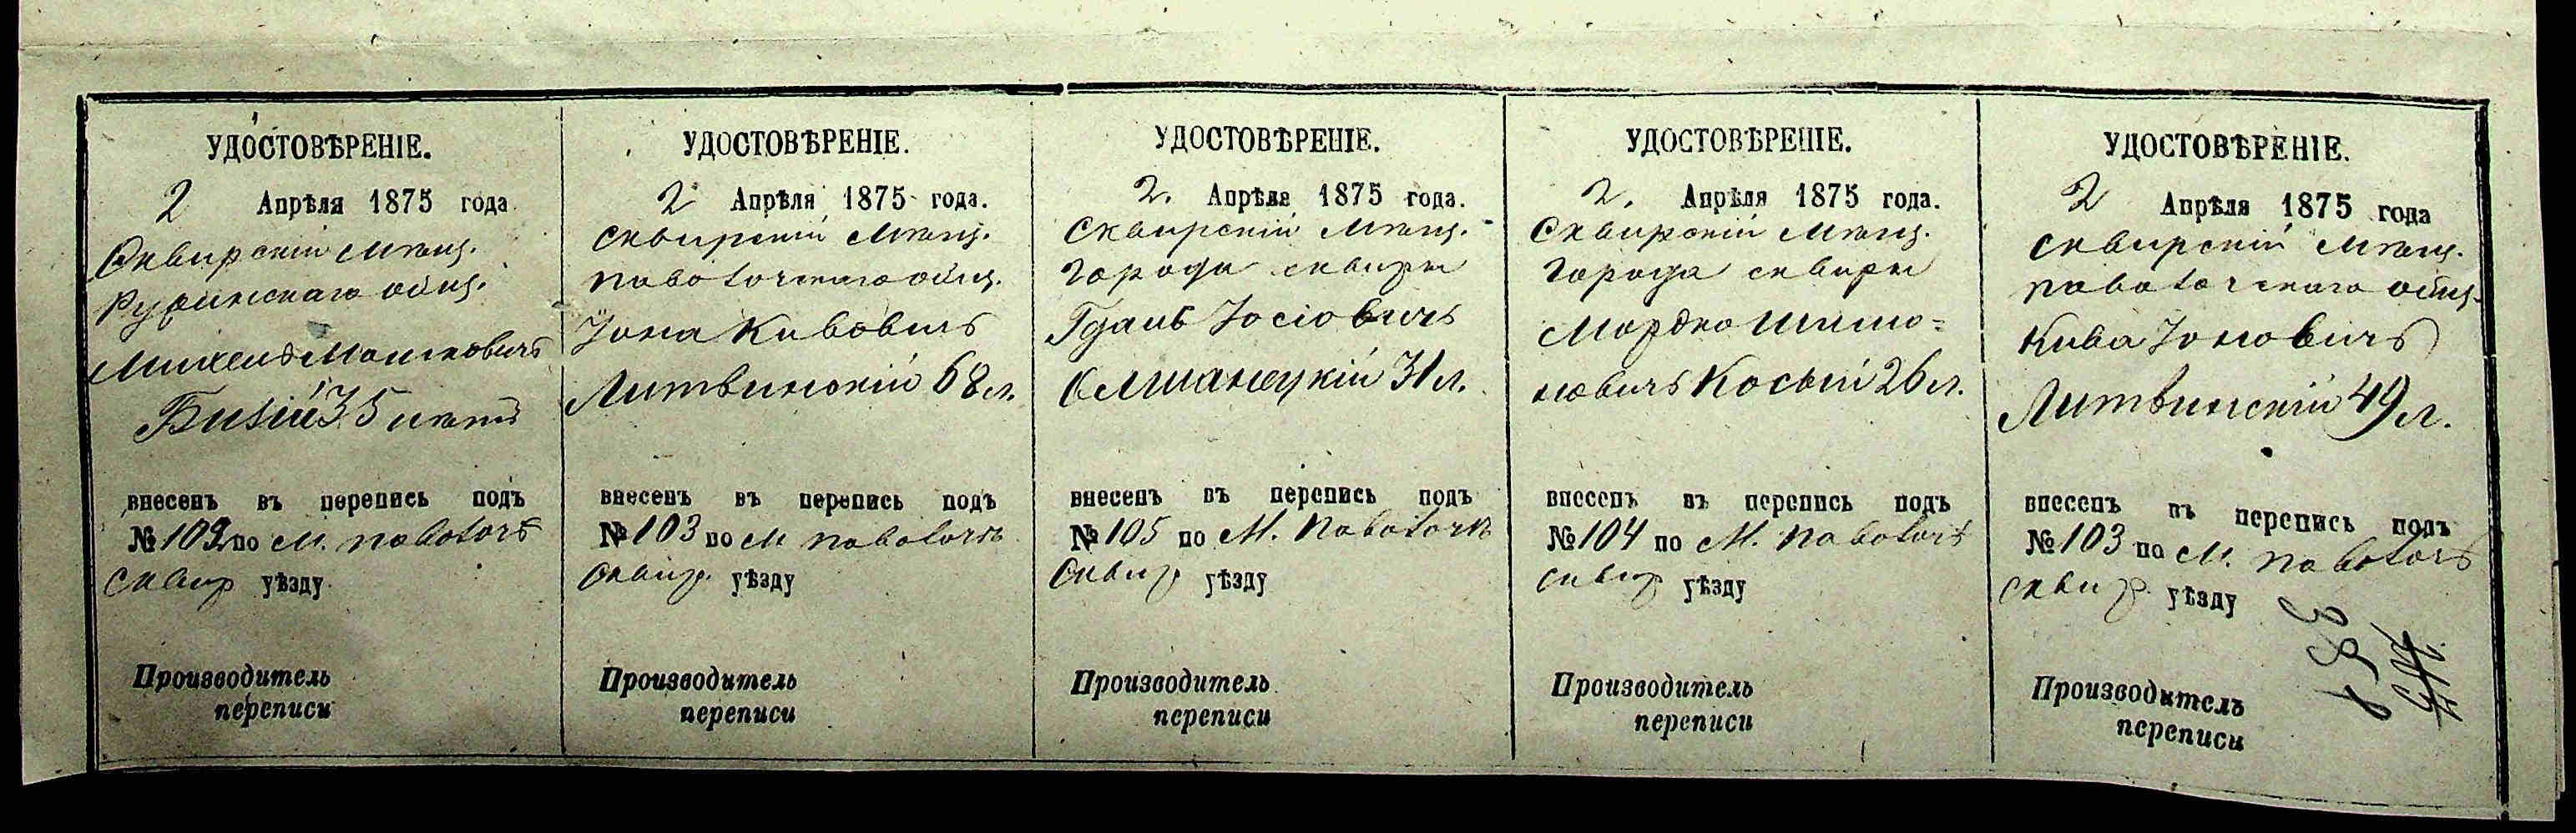 УДОСТОВѢРЕНІЕ.
2 Апрѣля 1875 года
Сквирскій мѣщ.
Ружинскаго общ.
Михель Мошковичъ
Бизій 35 лѣтъ
внесенъ въ перепись подъ
№ 102 по м. Паволочѣ
Сквир уѣзду
Производитель
переписи
УДОСТОВѢРЕНІЕ.
2 Апрѣля 1875 года.
Сквирскій мѣщ.
Паволочскаго общ.
Іона Кивовичъ
Литвинскій 68 л.
внесенъ въ перепись подъ
№ 103 по м Паволочѣ
Сквир. уѣзду
Производитель
переписи
УДОСТОВѢРЕНІЕ.
2. Апрѣля 1875 года.
Сквирскій мѣщ.
города Сквиры
Гдаль Іосіовичъ
Олшанецкій 31 л.
внесенъ въ перепись подъ
№ 105 по м. Паволочѣ
Сквир уѣзду
Производитель
переписи
УДОСТОВѢРЕНІЕ.
2. Апрѣля 1875 года.
Сквирскій мѣщ.
города Сквиры
Мордко Шимо=
новичъ Косый 26 л.
внесенъ въ перепись подъ
№ 104 по м. Паволочѣ
Сквир уѣзду
Производитель
переписи
УДОСТОВѢРЕНІЕ.
2 Апрѣля 1875 года
Сквирскій мѣщ.
Паволочскаго общ.
Кива Іоновичъ
Литвинскій 49 л.
внесенъ въ перепись подъ
№ 103 по м. Паволочѣ
Сквир. уѣзду
Производитель
переписи